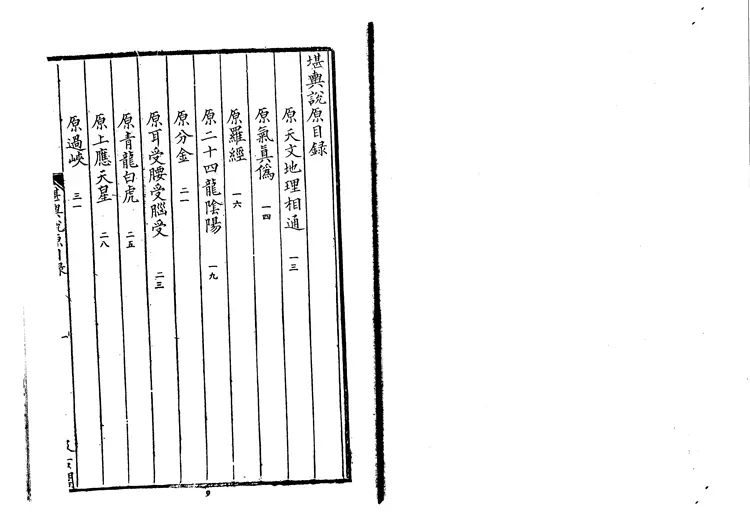 堪輿說原目錄
原天文地理相通 一三
原氣真僞 一四
原羅經 一六
原二十四龍陰陽 一九
原分金 二一
原耳受腰受腦受 二三
原青龍白虎 二五
原上應天星 二八
原過峽 三一
堪輿說原目錄
一
9